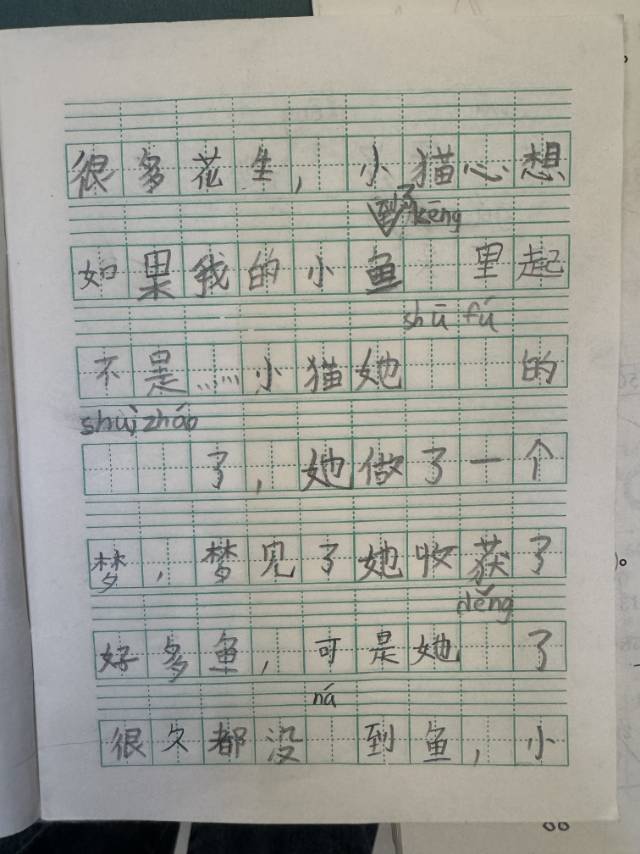 很多花生，小猫心想
到了 kēng
如果我的小鱼 里起
shū fú
不是……小猫她 的
shuì zháo
了，她做了一个
梦，梦见了她收获了
děng
好多鱼，可是她 了
ná
很久都没 到鱼，小